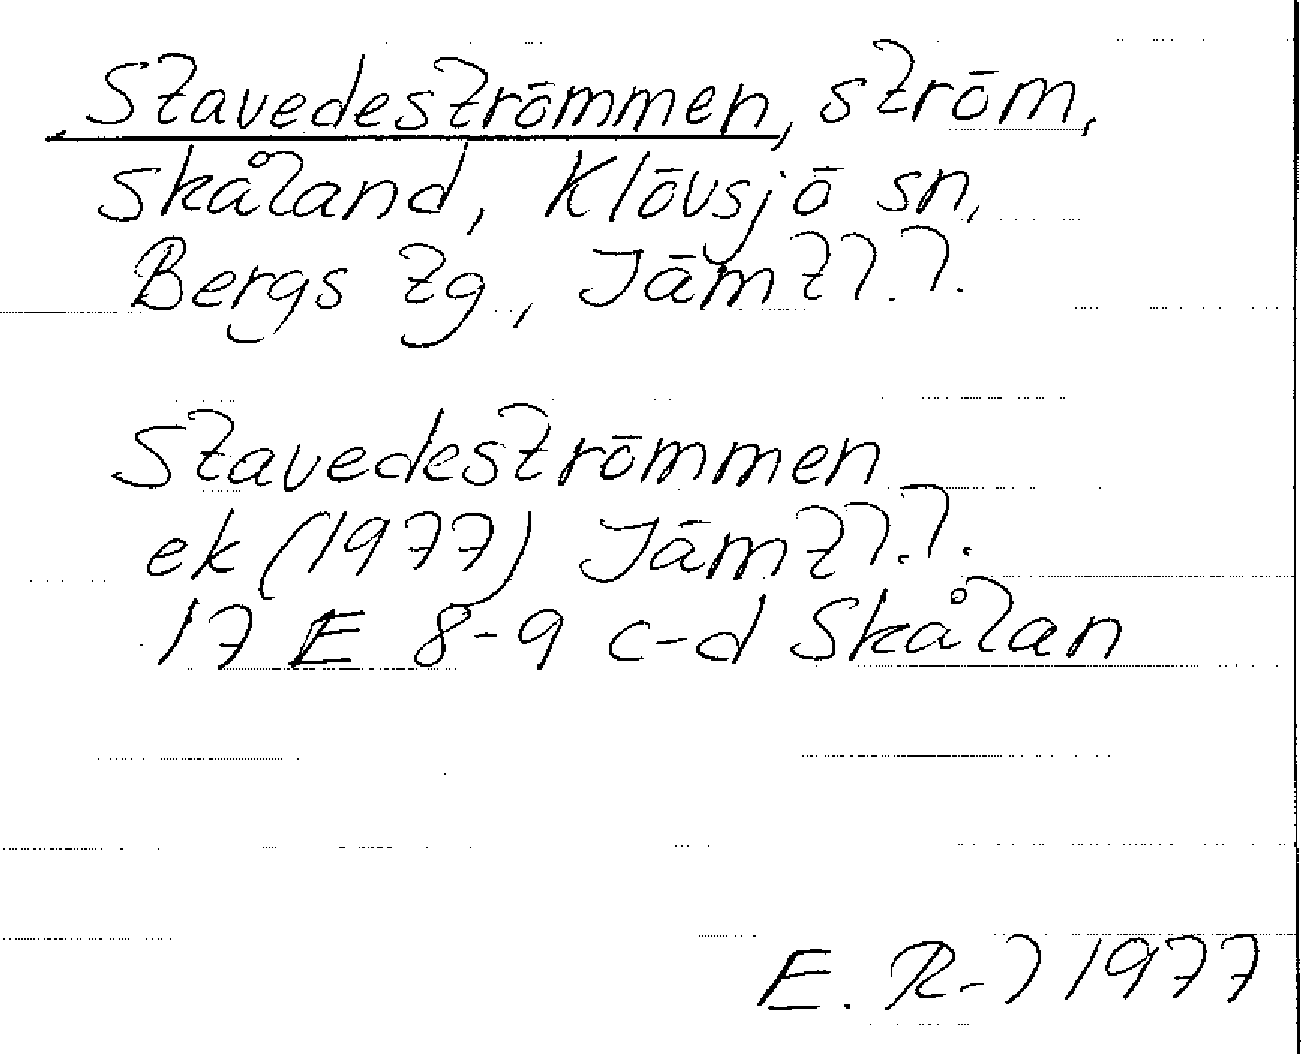 Stavedeströmmen, ström,
Skåland, Klövsjö sn,
Bergs tg., Jämtl.l.
Stavedeströmmen
ek (1977) Jämtl.l.
17 E 8-9 c-d Skålan
E. R-l 1977